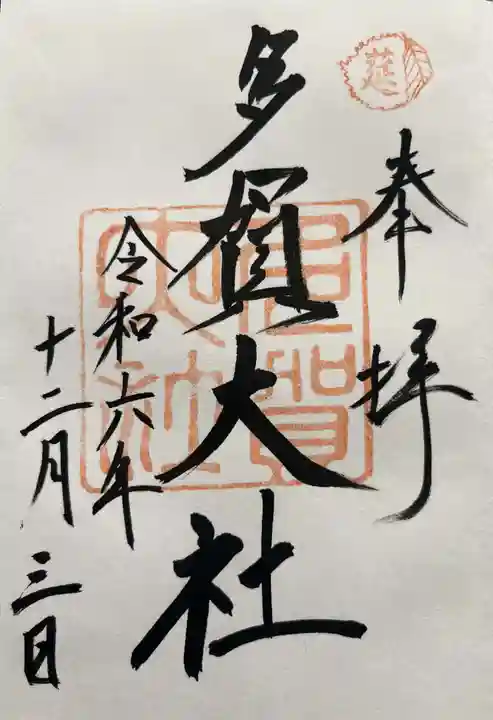 奉拝
莚
多賀大社
多賀大社
令和六年
十二月三日